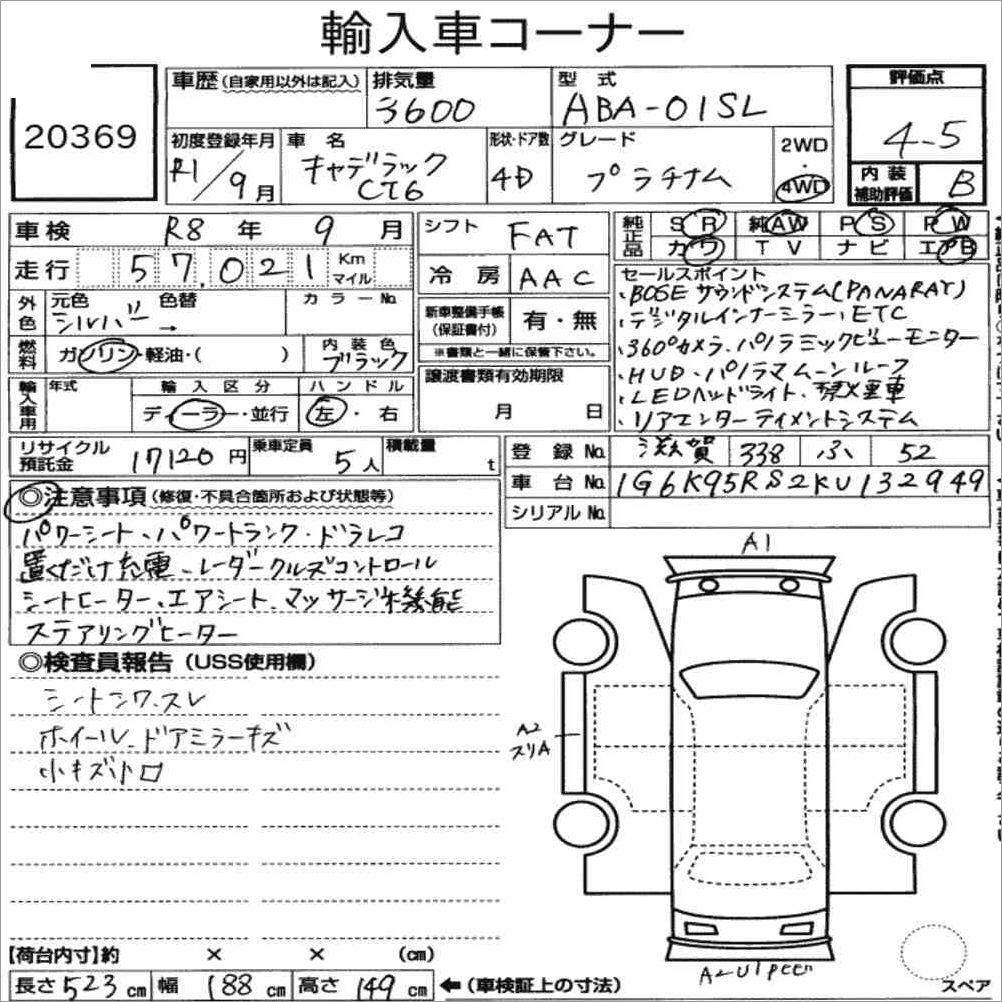 輸入車コーナー
20369
車歴(自家用以外は記入)
排気量 3600
型式 ABA-01SL
評価点 4-5
初度登録年月 R1/9月
車名 キャデラック CT6
形状・ドア数 4D
グレード プラチナム
2WD・4WD
内装補助評価 B
車検 R8年 9月
シフト FAT
純正品 SR 純AW PS PW
カワ TV ナビ エアB
走行 57,021 Km マイル
冷房 AAC
外色 元色 シルバー 色替 →
カラーNo.
新車整備手帳(保証書付) 有・無
※書類と一緒に保管下さい。
セールスポイント
・BOSEサウンドシステム(PANARAY)
・デジタルインナーミラー、ETC
・360°カメラ、パノラミックビューモニター
・HUD・パノラマムーンルーフ
・LEDヘッドライト、禁煙車
・リアエンターテイメントシステム
燃料 ガソリン・軽油・( )
内装色 ブラック
輸入車用 年式
輸入区分 ディーラー・並行
ハンドル 左・右
譲渡書類有効期限 月 日
リサイクル預託金 17120円
乗車定員 5人
積載量 t
登録No. 滋賀 338 ふ 52
車台No. 1G6K95RS2KU132949
シリアルNo.
◎注意事項(修復・不具合箇所および状態等)
パワーシート、パワートランク・ドラレコ
置くだけ充電、レーダークルーズコントロール
シートヒーター、エアシート、マッサージ機能
ステアリングヒーター
◎検査員報告(USS使用欄)
シートシワ、スレ
ホイール、ドアミラーキズ
小キズ小凹
A1
A2
スリA
A2U1
スペア
【荷台内寸】約 × × (cm)
長さ523cm 幅188cm 高さ149cm ←(車検証上の寸法)